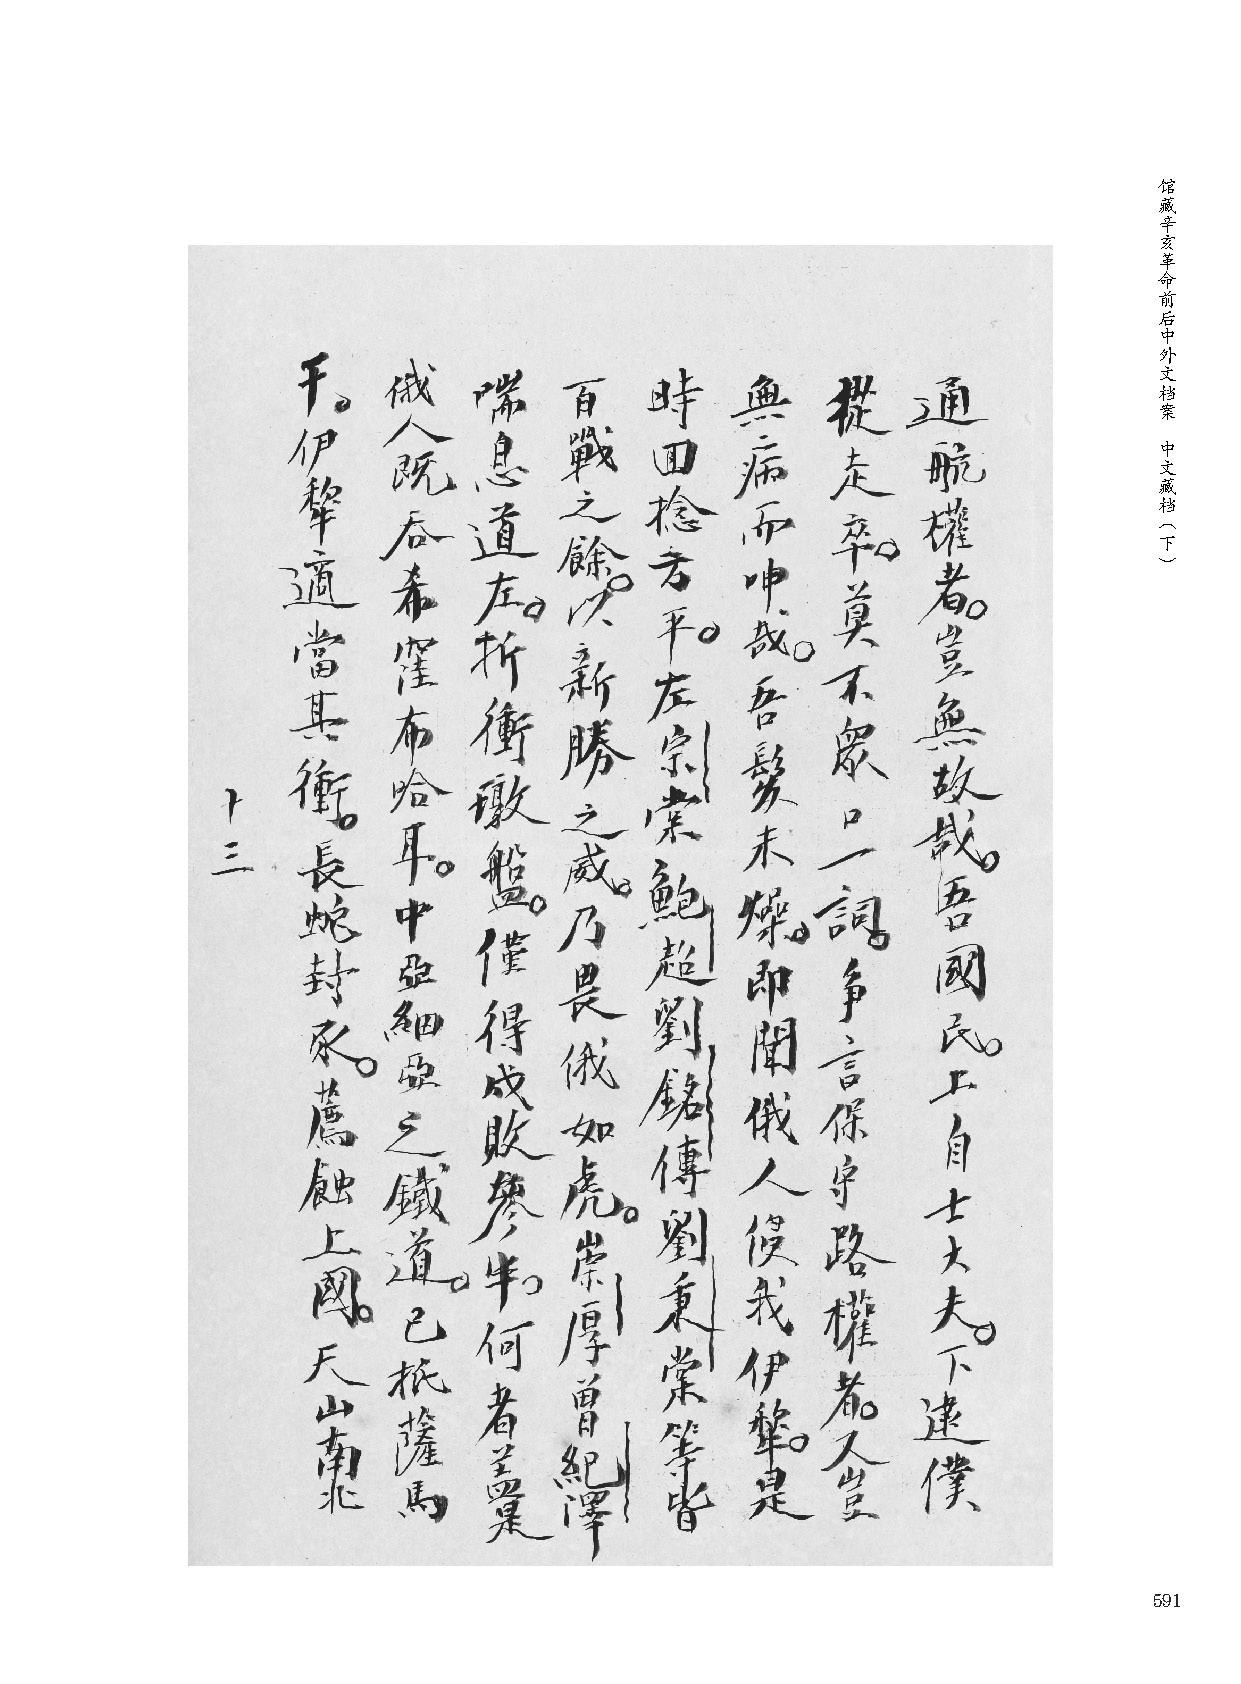 馆藏辛亥革命前后中外文档案 中文藏档（下）
通航權者。豈無故哉。吾國民。上自士大夫。下逮僕
從走卒。莫不眾口一詞。爭言保守路權者。人豈
無病而呻哉。吾髮未燥。即聞俄人侵我伊犂。是
時回捻方平。左宗棠鮑超劉銘傳劉秉棠等皆
百戰之餘。以新勝之威。乃畏俄如虎。崇厚曾紀澤
喘息道左。折衝墩盤。僅得成敗參半。何者蓋是
俄人既吞希窪布哈耳。中亞細亞之鐵道。已抵薩馬
干。伊犂適當其衝。長蛇封豕。薦蝕上國。天山南北
十三
591